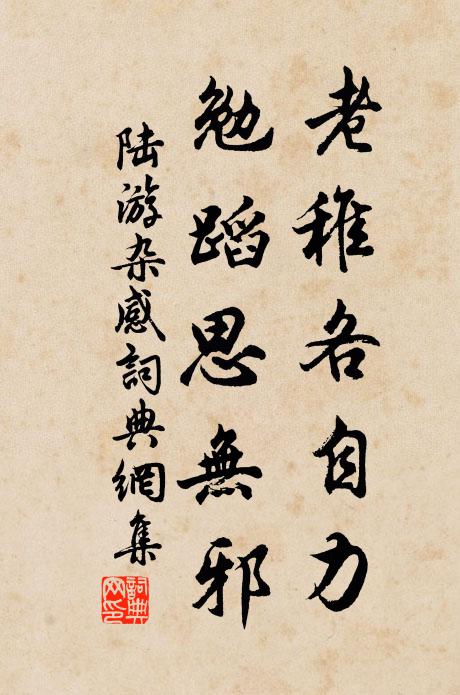 老稚各自力
勉蹈思無邪
陆游杂感詞典網集
詞典網印